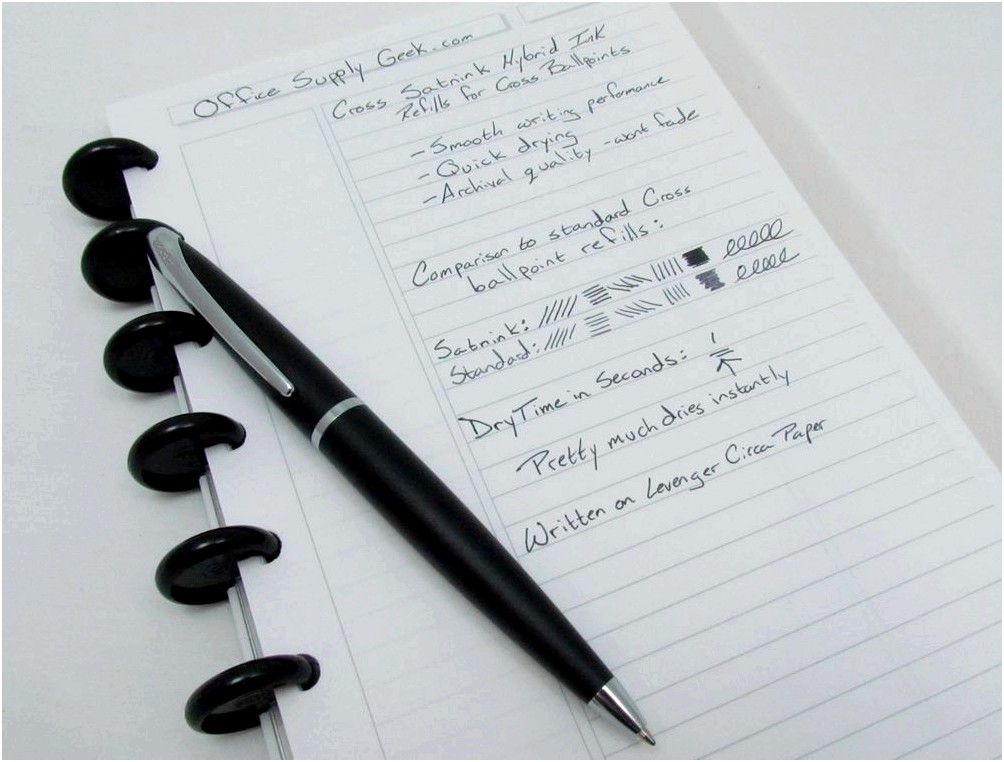 Office Supply Geek.com
Cross Satrink Hybrid Ink
Refills for Cross Ballpoints
- Smooth writing performance
- Quick drying
- Archival quality - wont fade
Comparison to standard Cross
ballpoint refills:
Satrink:
Standard:
Dry Time in Seconds: 1
Pretty much dries instantly
Written on Levenger Circa Paper